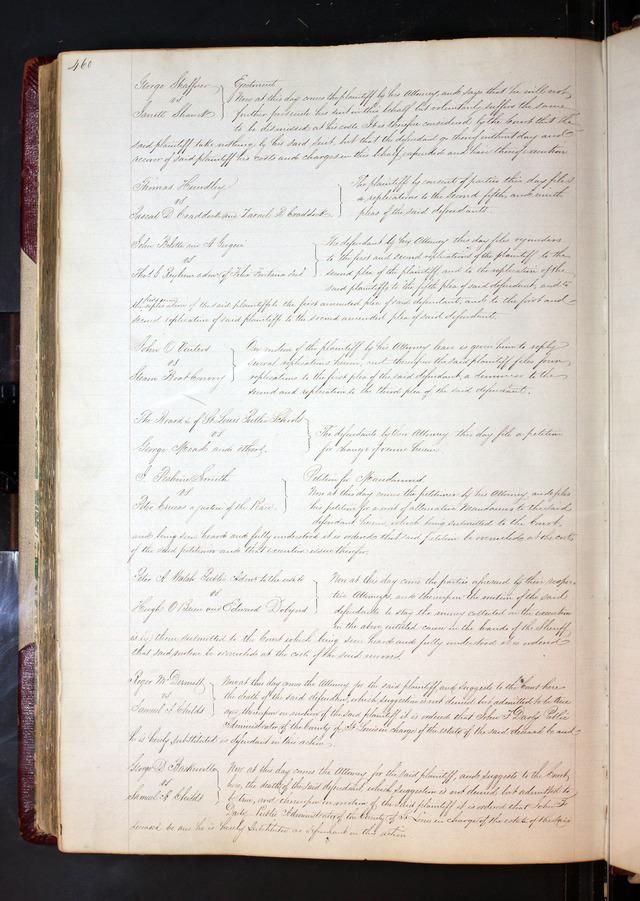 460
George Shaffner
vs
Janett Shanet
Ejectment
Now at this day comes the plaintiff by his Attorney, and says that he will not
further prosecute his suit in this behalf but voluntarily suffers the same
to be dismissed at his costs It is therefore considered by the Court that the
said plaintiff take nothing by his said suit, but that the defendant go thereof without day and
recover of said plaintiff his costs and charges in this behalf expended and have thereof execution
Thomas Hundley
vs
Pascal D. Craddock and Craddock
The plaintiff by consent of parties this day files
a replication to the second fifth, and ninth
pleas of the said defendants.
John and A
vs
adm. of Felix dec'd
The defendant by his Attorney this day files rejoinders
to the first and second replications of the plaintiff to the
second plea of the plaintiff, and to the replication of the
said plaintiffs to the fifth plea of said defendant, and to
the replication of the said plaintiffs to the first amended plea of said defendant, and to the first and
second replication of said plaintiffs to the second amended plea of said defendant.
John O
vs
Steam Boat Convoy
On motion of the plaintiff by his Attorney leave is given him to reply
several replications herein, and thereupon the said plaintiff files four
replications to the first plea of the said defendant, a demurrer to the
second and replication to the third plea of the said defendant.
The Board &c of St Louis Public Schools
vs
George and others.
The defendants by their Attorney this day file a petition
for change of venue herein.
J. Smith
vs
Peter a justice of the Peace.
Petition for Mandamus
Now at this day comes the petitioner by his Attorney, and files
his petition for a writ of alternative Mandamus to the said
defendant herein, which being submitted to the Court,
and being seen heard and fully understood it is ordered that said petition be overruled at the costs
of the said petitioner and that execution issue therefor.
Peter A Walsh Public Admr to the estate
vs
Hugh O'Brien and Edward Dobyns
Now at this day come the parties aforesaid by their respec-
tive Attorneys and thereupon the motion of the said
defendants to stay the money collected on the execution
in the above entitled cause in the hands of the Sheriff,
is by them submitted to the Court which being seen heard and fully understood it is ordered
that said motion be overruled at the costs of the said movers.
Roger McDermott
vs
Samuel A. Childs
Now at this day comes the Attorney for the said plaintiff, and suggests to the Court here
the death of the said defendant, which suggestion is not denied but admitted to be true
and thereupon on motion of the said plaintiff it is ordered that John F Darby Public
Administrator of the County of St Louis in charge of the estate of the said deceased be and
he is hereby substituted as defendant in this action.
George D.
vs
Samuel A. Childs
Now at this day comes the Attorney for the said plaintiff, and suggests to the Court
here, the death of the said defendant, which suggestion is not denied, but admitted to
be true, and thereupon on motion of the said plaintiff it is ordered that John F
Darby Public Administrator of the County of St Louis in charge of the estate of the said
deceased be and he is hereby substituted as defendant in this action